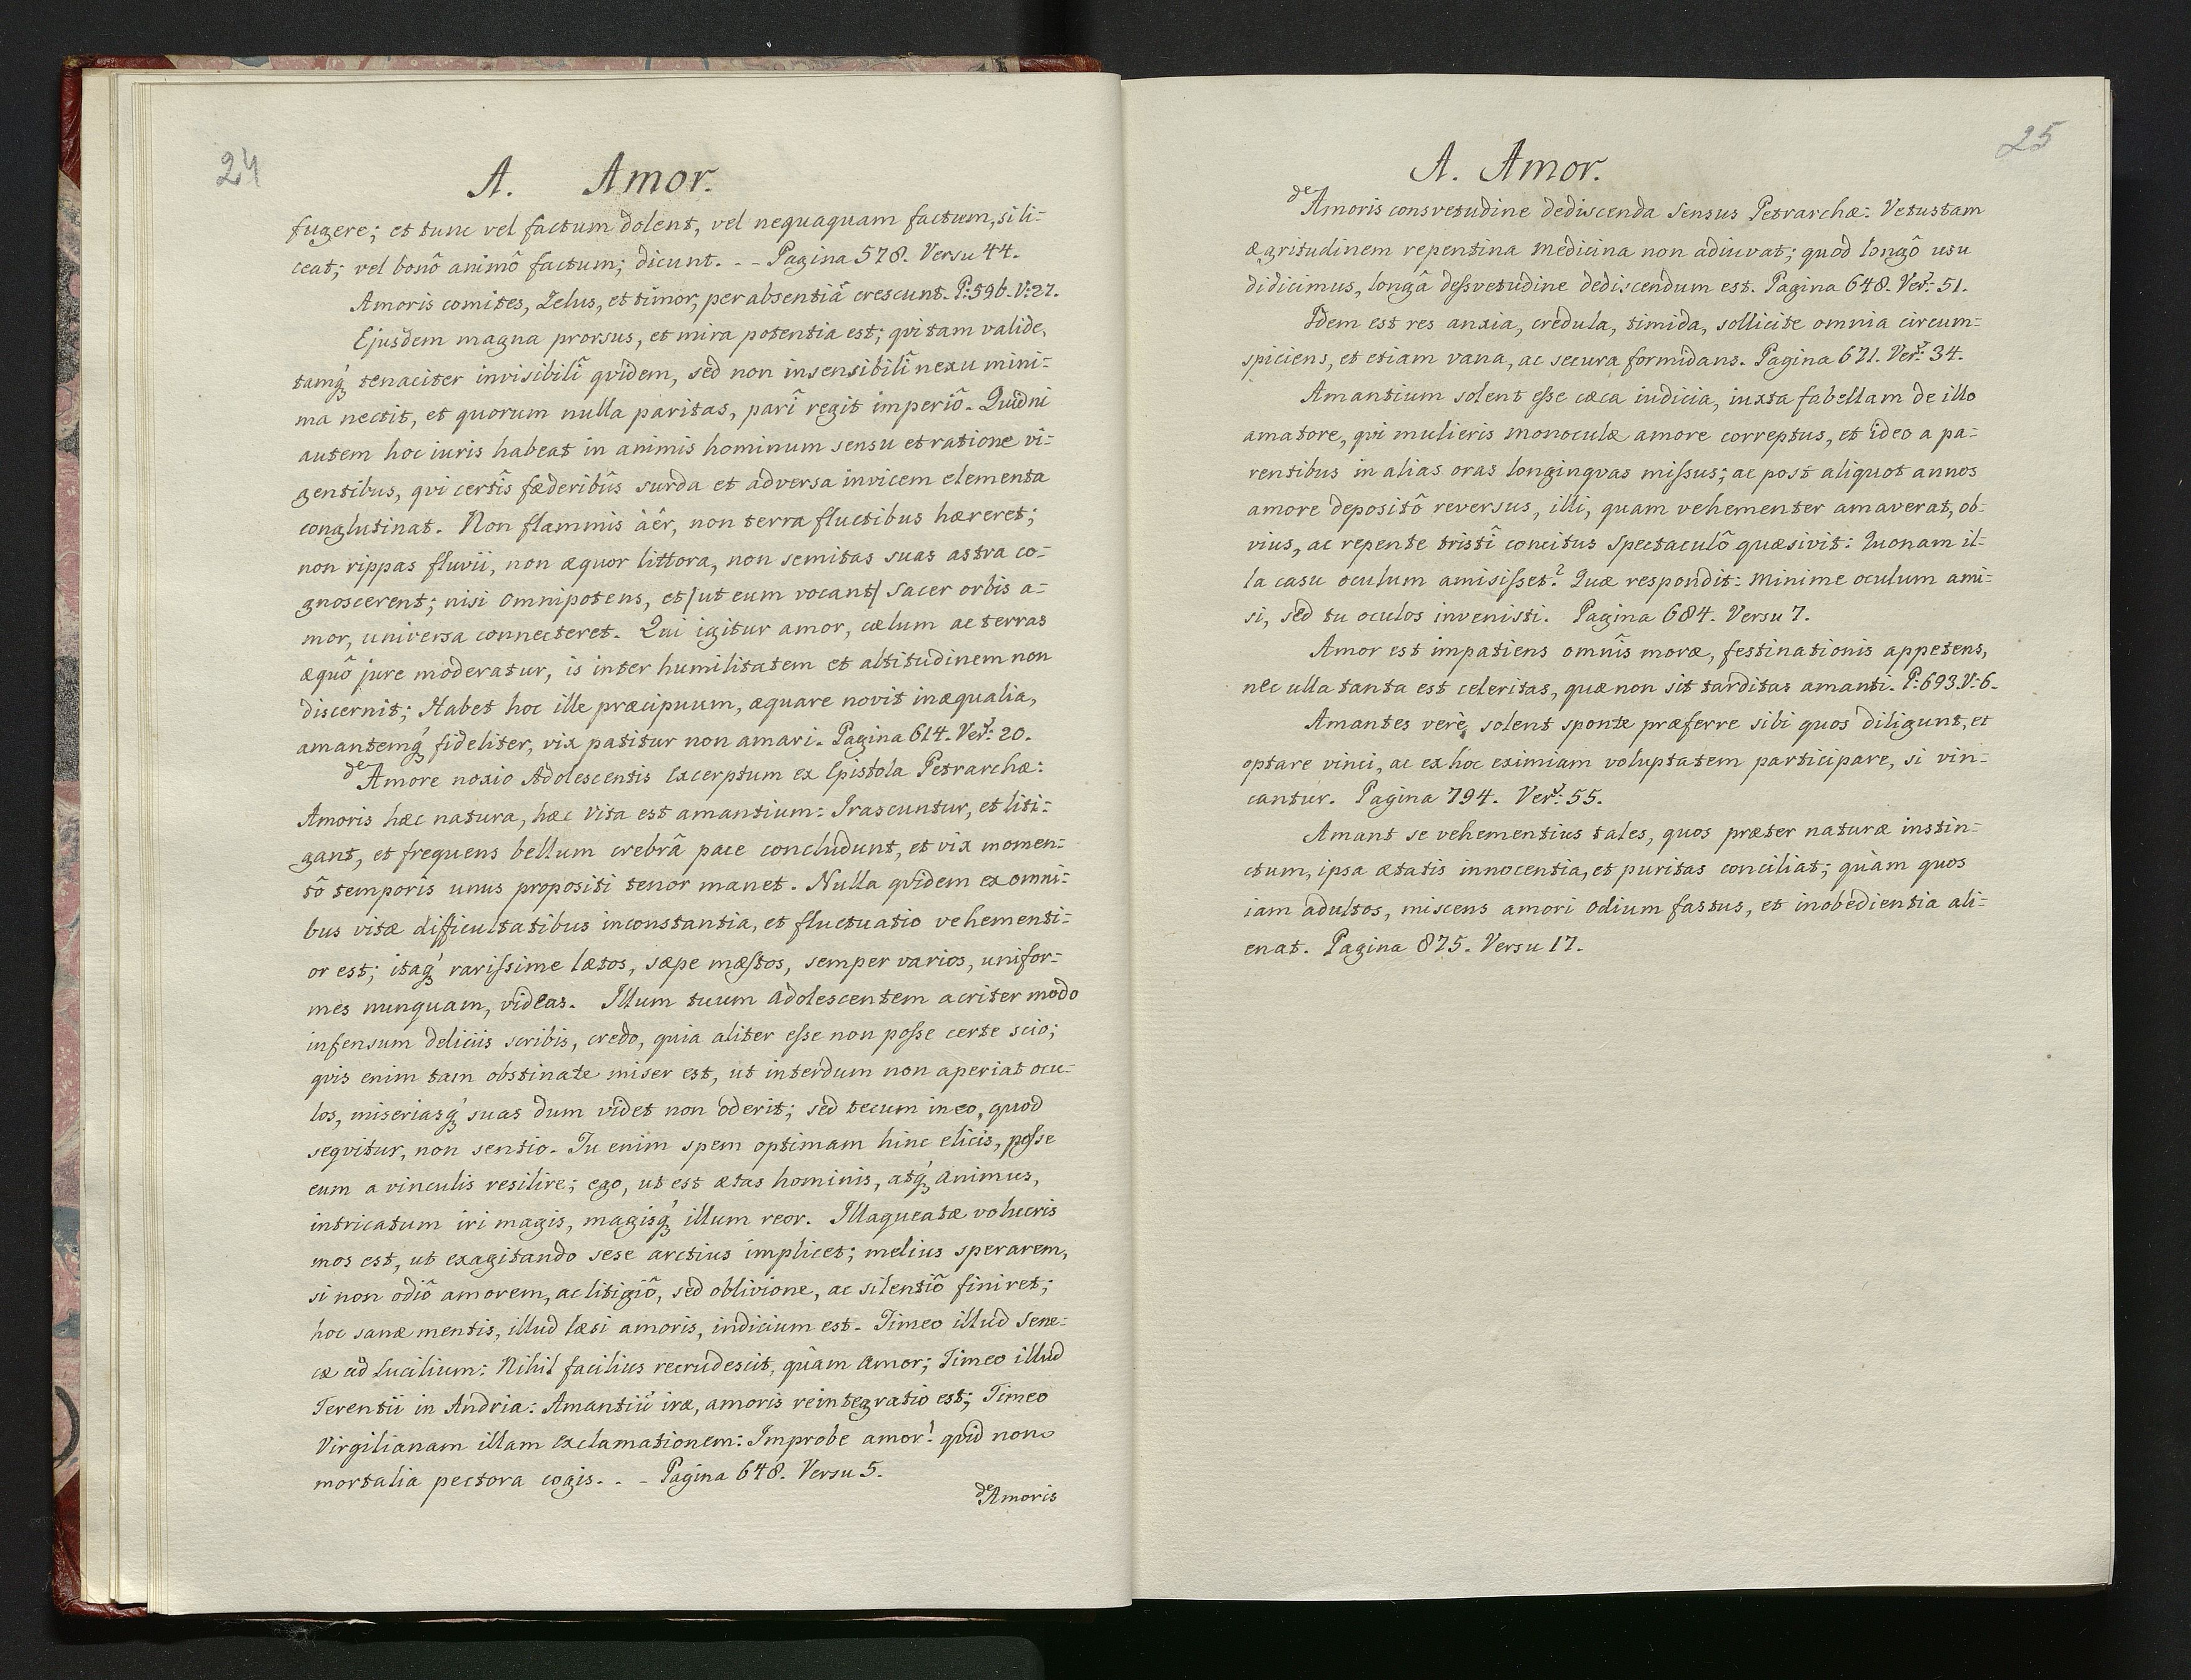 24
A. Amor.
fugere; et tunc vel factum dolent, vel nequaquam factum, si li=
ceat; vel bonô animô factum; dicunt. - - Pagina 578. Versu 44.
Amoris comites, Zelus, et timor, per absentiã crescunt. P: 596. V: 27.
Ejusdem magna prorsus, et mira potentia est; qvi tam valide,
tamq́ʒ tenaciter invisibilî qvidem, sed non insensibilî nexu mini=
ma nectit, et quorum nulla paritas, parî regit imperiô. Quidni
autem hoc iuris habeat in animis hominum sensu et ratione vi=
gentibus, qvi certîs fæderibûs surda et adversa invicem elementa
conglutinat. Non flammis àér, non terra fluctibus hæreret;
non rippas fluvii, non æquor littora, non semitas suas astra co=
gnoscerent; nisi Omnipotens, et /ut eum vocant/ Sacer orbis a=
mor, universa connecteret. Qui igitur amor, cælum ac terras
æquô jure moderatur, is inter humilitatem et altitudinem non
discernit; Habet hoc ille præcipuum, æquare novit inæqualia,
amantemq́ʒ fideliter, vix patitur non amari. Pagina 614. Verˢ: 20.
de Amore noxio Adolescentis Excerptum ex Epistola Petrarchæ:
Amoris hæc natura, hæc Vita est amantium: Irascuntur, et liti=
gant, et frequens bellum crebrâ pace concludunt, et vix momen=
tô temporis unus propositi tenor manet. Nulla qvidem ex omni=
bus vitæ difficultatibus inconstantia, et fluctuatio vehementi=
or est; itaq́ʒ rariſsime lætos, sæpe mæſtos, semper varios, unifor=
mes nunquam, videas. Illum tuum Adolescentem acriter modo
infensum deliciis scribis, credo, quia aliter eſse non poſse certe scio;
qvis enim tam obstinate miser est, ut interdum non aperiat ocu=
los, miseriasq́ʒ suas dum videt non oderit; sed tecum in eo, quod
seqvitur, non sentio. Tu enim spem optimam hinc elicis, poſse
eum a vinculis resilire; ego, ut est ætas hominis, atq́ʒ animus,
intricatum iri magis, magisq́ʒ illum reor. Illaqueatæ volucris
mos est, ut exagitando sese arctius implicet; melius sperarem,
si non odiô amorem, ac litigiô, sed oblivione, ac silentiô finiret;
hoc sanæ mentis, illud læsi amoris, indicium est. Timeo illud Sene=
cæ ad Lucilium: Nihil facilius recrudescit, quàm Amor; Timeo illud
Terentii in Andria: Amantiũ iræ, amoris reintegratio est; Timeo
Virgilianam illam Exclamationem: Improbe amor! qvid non
mortalia pectora cogis. - - Pagina 648. Versu 5.
de Amoris
25
A. Amor.
de Amoris consvetudine dediscenda Sensus Petrarchæ: Vetustam
ægritudinem repentina Medicina non adiuvat; quod longô usu
didicimus, longâ deſsvetudine dediscendum est. Pagina 648. Verˢ: 51.
Idem est res anxia, credula, timida, sollicite omnia circum=
spiciens, et etiam vana, ac secura formidans. Pagina 671. Verˢ: 34.
Amantium solent eſse cæca iudicia, iuxta fabellam de illo
amatore, qvi mulieris monoculæ amore correptus, et ideo a pa=
rentibus in alias oras longinqvas miſsus; ac post aliquot annos
amore depositô reversus, illi, quam vehementer amaverat, ob=
vius, ac repente tristî concitus Spectaculô quæsivit: Quonam il=
la casu oculum amisiſset? Quæ respondit: Minime oculum ami=
si, sed tu oculos invenisti. Pagina 684. Versu 7.
Amor est impatiens omnîs moræ, festinationis appetens,
nec ulla tanta est celeritas, quæ non sit tarditas amanti. P: 693. V: 6.
Amantes verè, solent sponte præferre sibi quos diligunt, et
optare vinci, ac ex hoc eximiam voluptatem participare, si vin=
cantur. Pagina 794. Verˢ: 55.
Amant se vehementius tales, quos præter naturæ instin=
ctum, ipsa ætatis innocentia, et puritas conciliat; quàm quos
iam adultos, miscens amori odium fastus, et inobedientia ali=
enat. Pagina 875. Versu 17.